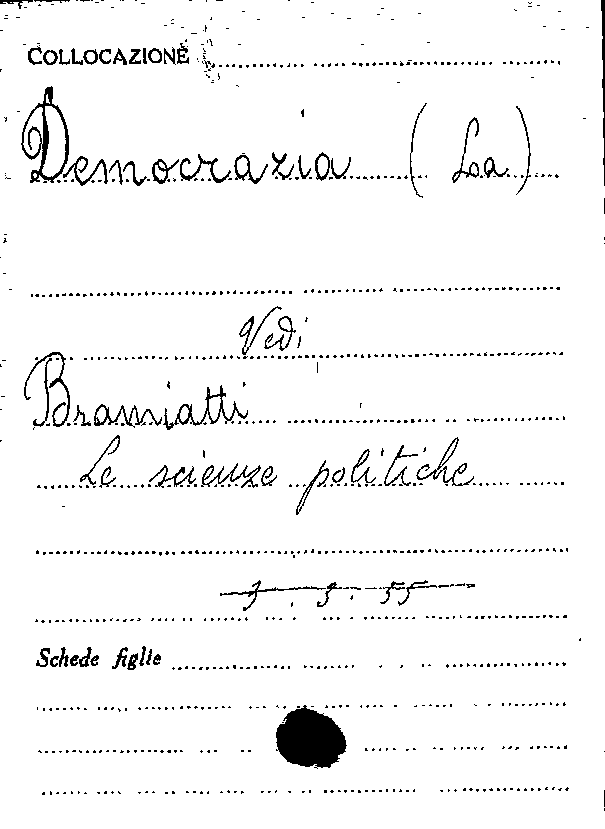 COLLOCAZIONE
Democrazia (La)
Vedi
Bramiatti
Le scienze politiche
Schede figlie